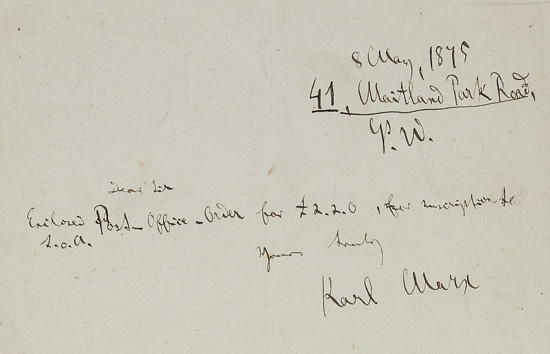 8 May, 1875
41, Maitland Park Road,
N.W.
Dear Sir
Enclosed Post-Office-Order for £2.2.0, for
Yours truly
Karl Marx